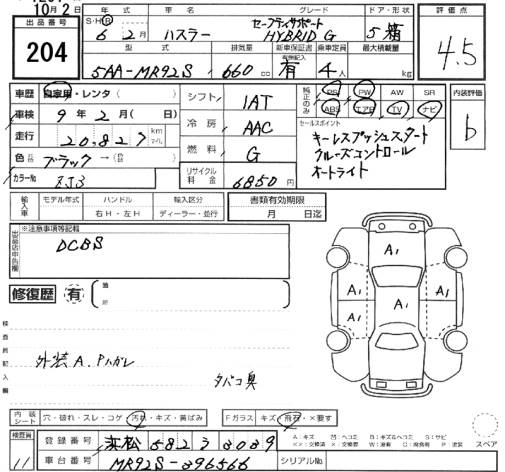 10月2日
出品番号
204
年式 車名 グレード ドア・形状
S・H・R 6年 2月 ハスラー セーフティサポート HYBRID G 5 箱
型式 排気量 新車保証書 乗車定員 最大積載量
有効記入
5AA-MR92S 660cc 有 4人 kg
評価点
4.5
車歴 自家用・レンタ( )
車検 9年2月( 日)
走行 20,827 km マイル
色 ブラック→( )
カラーNo ZJ3
シフト 1AT
冷房 AAC
燃料 G
リサイクル料金 6850円
純正のみ
PS PW AW SR
ABS エアB TV ナビ
セールスポイント
キーレスプッシュスタート
クルーズコントロール
オートライト
内装評価
b
輸入車
モデル年式 ハンドル 輸入区分
右H・左H ディーラー・並行
書類有効期限
月 日迄
※注意事項等記載
出品店申告欄
DCBS
修復歴 有
検査員記入欄
外装A.Pハガレ
タバコ臭
A1
A1 A1 A1
内装シート 穴・破れ・スレ・コゲ 汚れ・キズ・黄ばみ
Fガラス キズ・飛石・×要す
スペア
検査員
11
登録番号 浜松 582 ラ 3039
車台番号 MR92S-396566
シリアルNo.
A:キズ U:ヘコミ B:キズ&ヘコミ S:サビ
××:交換済 ×:交換要 W:波有 C:腐食有 P:塗装